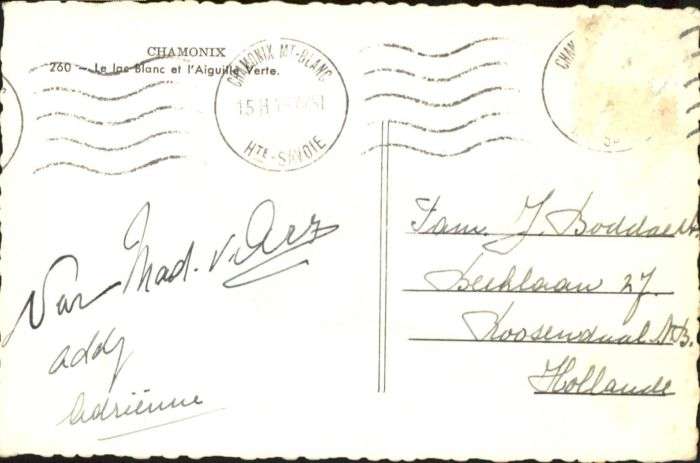 CHAMONIX
260 — Le lac Blanc et l'Aiguille Verte.
CHAMONIX MT-BLANC
15H
51
HTE-SAVOIE
CHAM
Van Mad. v.
addy
Adriënne
Fam. J. Boddaert
Beeklaan 27.
Roosendaal N.B.
Hollande